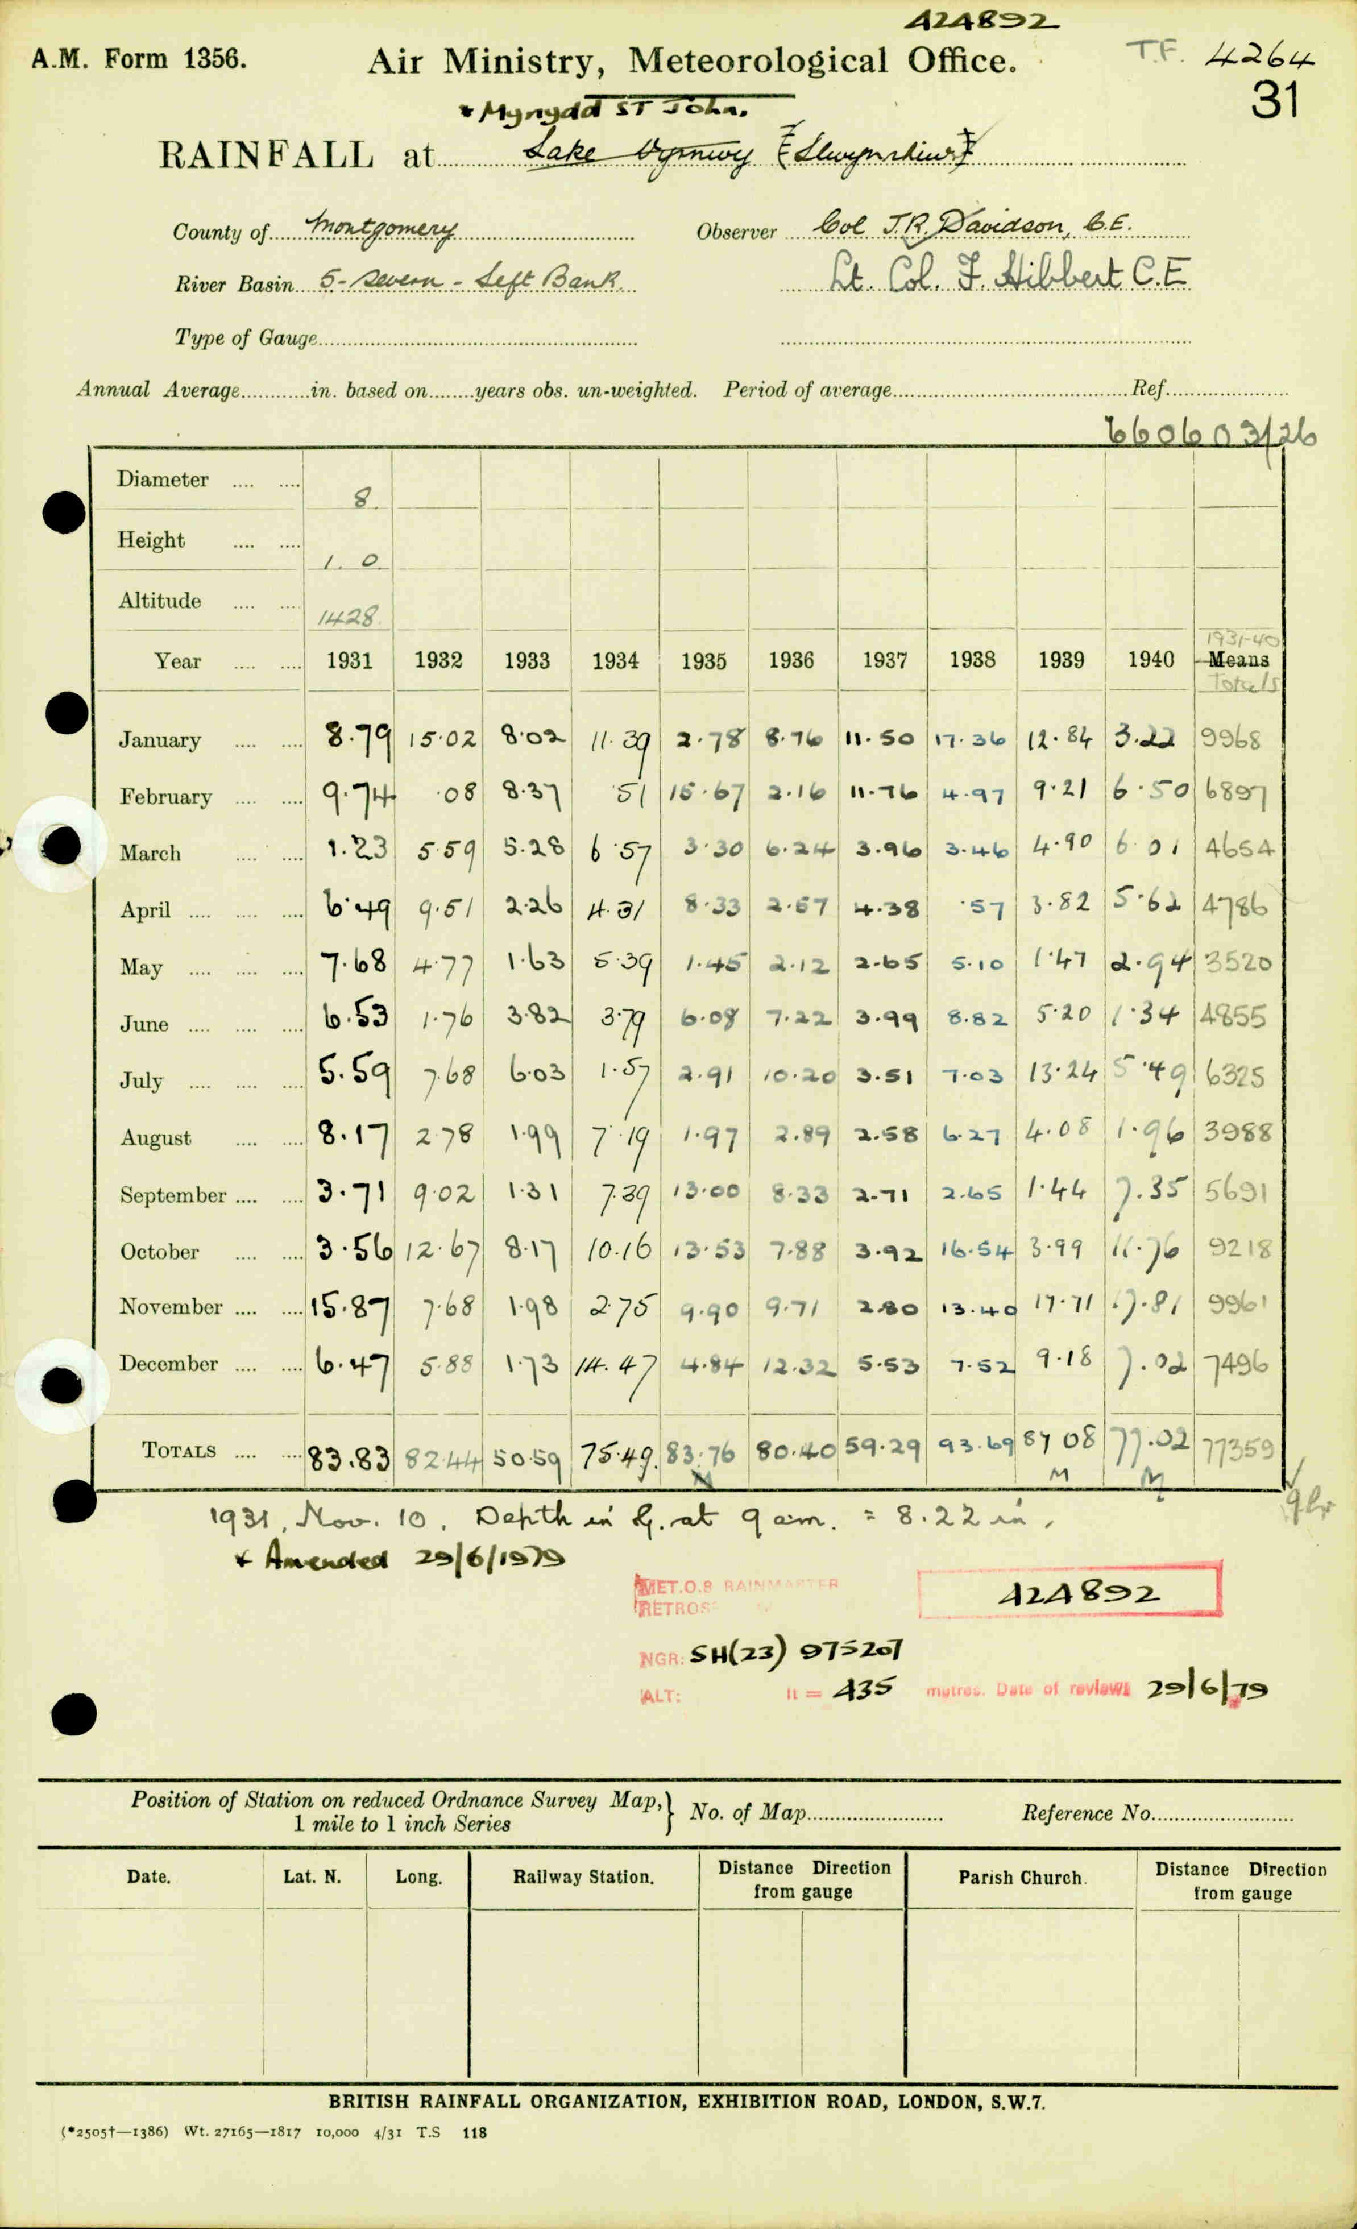 424892
A.M. Form 1356.
Air Ministry, Meteorological Office.
T.F. 4264
31
* Mynydd ST John.
RAINFALL at Lake Vyrnwy
County of Montgomery
Observer Col J.R. Davidson, C.E.
River Basin 5-Severn - Left Bank.
Lt. Col. F. Hibbert C.E
Type of Gauge
Annual Average in. based on years obs. un-weighted. Period of average Ref.
660603/26
Diameter 8.
Height 1. 0
Altitude 1428
1931-40
Year 1931 1932 1933 1934 1935 1936 1937 1938 1939 1940 Means
Totals
January 8.79 15.02 8.02 11.39 2.78 8.76 11.50 17.36 12.84 3.22 9968
February 9.74 .08 8.37 .51 15.67 2.16 11.76 4.97 9.21 6.50 6897
March 1.23 5.59 5.28 6.57 3.30 6.24 3.96 3.46 4.90 6.01 4654
April 6.49 9.51 2.26 4.31 8.33 2.57 4.38 .57 3.82 5.62 4786
May 7.68 4.77 1.63 5.39 1.45 2.12 2.65 5.10 1.47 2.94 3520
June 6.53 1.76 3.82 3.79 6.08 7.22 3.99 8.82 5.20 1.34 4855
July 5.59 7.68 6.03 1.57 2.91 10.20 3.51 7.03 13.24 5.49 6325
August 8.17 2.78 1.99 7.19 1.97 2.89 2.58 6.27 4.08 1.96 3988
September 3.71 9.02 1.31 7.39 13.00 8.33 2.71 2.65 1.44 7.35 5691
October 3.56 12.67 8.17 10.16 13.53 7.88 3.92 16.54 3.99 11.76 9218
November 15.87 7.68 1.98 2.75 9.90 9.71 2.80 13.40 17.71 17.81 9961
December 6.47 5.88 1.73 14.47 4.84 12.32 5.53 7.52 9.18 7.02 7496
TOTALS 83.83 82.44 50.59 75.49 83.76 80.40 59.29 93.69 87.08 77.02 77359
M M M
1931, Nov. 10. Depth in G. at 9 am. = 8.22 in.
* Amended 29/6/1979
MET.O.8 RAINMASTER
424892
NGR: SH(23) 975207
ALT: ft = 435 metres. Date of review: 29/6/79
Position of Station on reduced Ordnance Survey Map, 1 mile to 1 inch Series } No. of Map Reference No.
Date. Lat. N. Long. Railway Station. Distance Direction from gauge Parish Church. Distance Direction from gauge
BRITISH RAINFALL ORGANIZATION, EXHIBITION ROAD, LONDON, S.W.7.
(*2505†—1386) Wt. 27165—1817 10,000 4/31 T.S 118